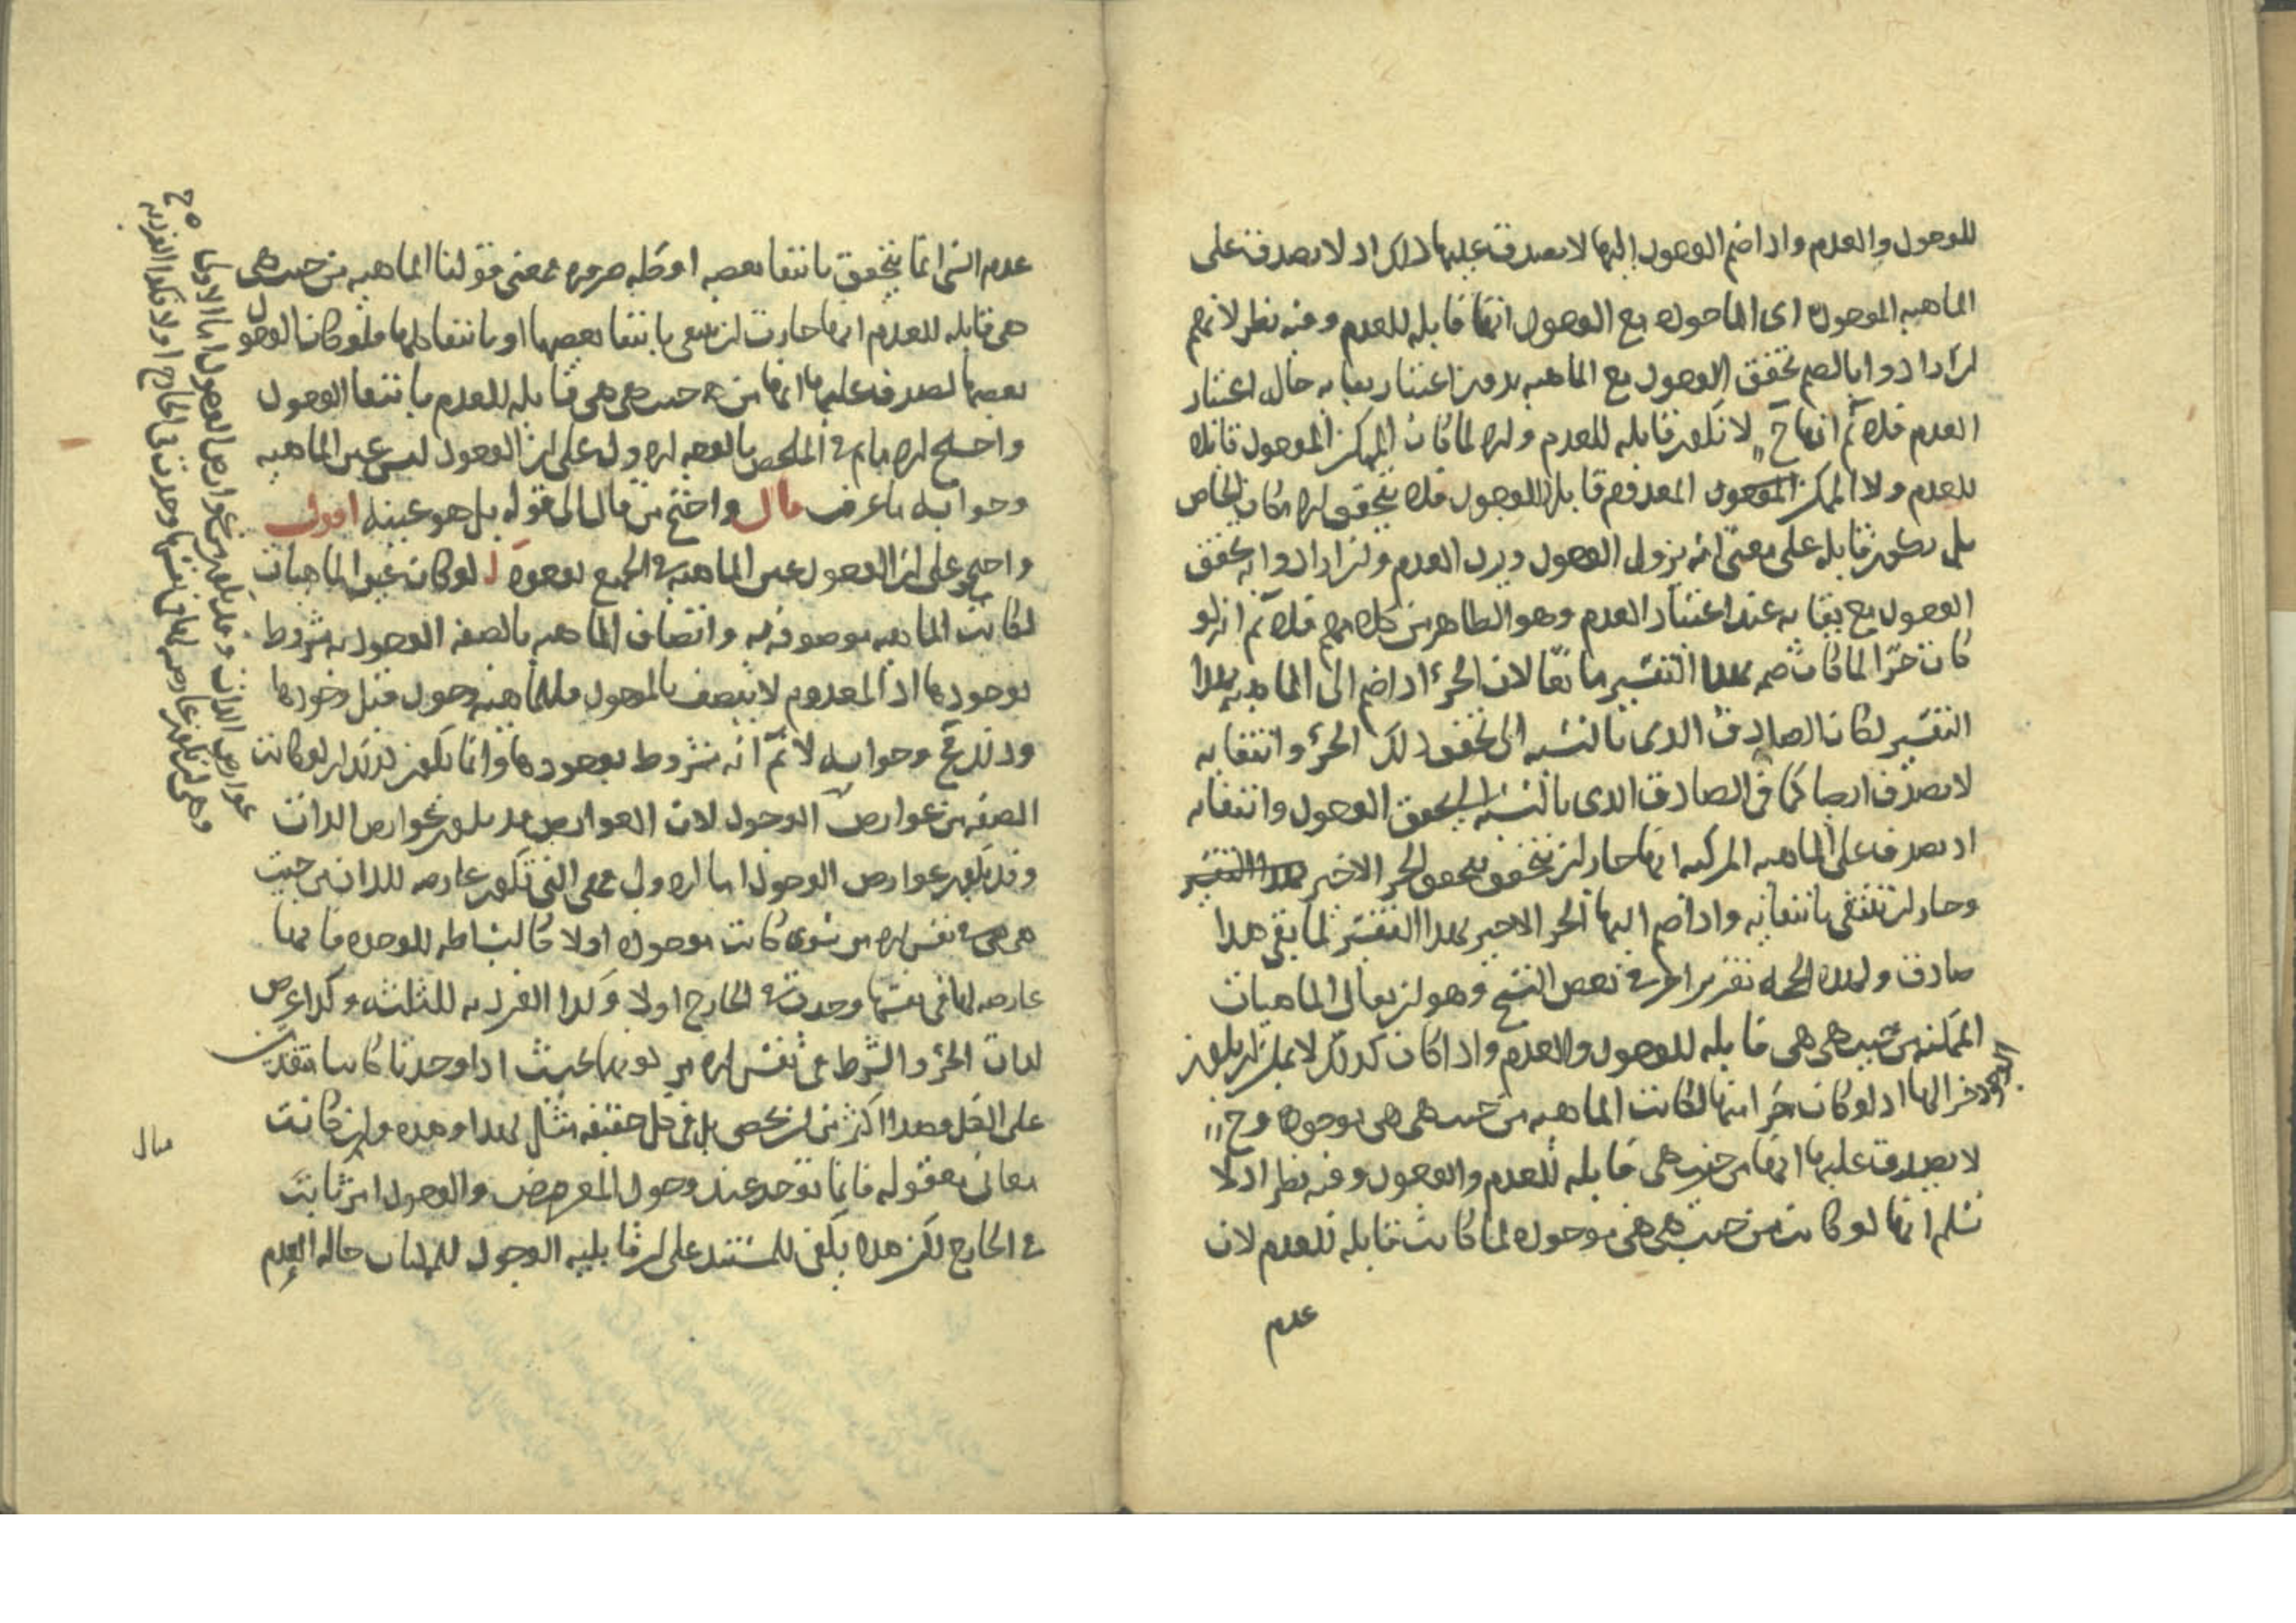 للوجود والعدم واذا ضم الوجود اليها لا يصدق عليها ذلك اذ لا يصدق على
الماهية الموجودة اى الماخوذة مع الوجود انها قابلة للعدم وفيه نظر لانهم
ان ارادوا بالضم تحقق الوجود مع الماهية بدون اعتبار بقايه حال اعتبار
العدم فلا نم انها ح لا تكون قابلة للعدم والا لما كان الممكن الموجود قابلا
للعدم ولا الممكن المعدوم قابلا للوجود فلا يتحقق الامكان الخاص
بل يكون قابلة على معنى انه يزول الوجود ويرد العدم وان ارادوا به تحقق
الوجود مع بقايه عند اعتبار العدم وهو الظاهر من كلامهم فلا نم انه لو
كان جزءا لما كان ضمه بهذا التفسير مانعا لان الجزء اذا ضم الى الماهية بهذا
التفسير لكان الصادق الذى بالنسبة الى تحقق ذلك الجزء وانتفايه
لا يصدق ايضا كما فى الصادق الذى بالنسبة الى تحقق الوجود وانتفايه
اذ يصدق على الماهية المركبة انها جاز ان تتحقق بتحقق الجزء الاخير
وجاز ان تنتفى بانتفايه واذا ضم اليها الجزء الاخير بهذا التفسير لما بقى هذا
صادقا ولهذه الحجة تقرير اخر فى بعض النسخ وهو ان يقال الماهيات
الممكنة من حيث هى هى قابلة للوجود والعدم واذا كان كذلك لا يمكن ان يكون
الوجود جزءا لها اذ لو كان جزءا منها لكانت الماهية من حيث هى هى موجودة وح
لا يصدق عليها انها من حيث هى قابلة للعدم والوجود وفيه نظر اذ لا
نسلم انها لو كانت من حيث هى هى موجودة لما كانت قابلة للعدم لان
عدم
عدم الشى انما يتحقق بانتفا بعضه او كله ضرورة فمعنى قولنا الماهية من حيث هى
هى قابلة للعدم انها جازت ان تنتفى بانتفا بعضها او بانتفا كلها فلو كان الوجود
بعضها لصدق عليها انها من حيث هى هى قابلة للعدم بانتفا الوجود
واحتج الامام فى الملخص بالوجه الاول على ان الوجود ليس عين الماهية
وجوابه ما عرف قال واحتج من قال الى قوله بل هو عينه اقول
واحتج على ان الوجود عين الماهية فى الجميع بوجوه ا لو كان غير الماهيات
لكانت الماهية موصوفة به واتصاف الماهية بالصفة الوجودية مشروط
بوجودها اذ المعدوم لا يتصف بالموجود فللماهية وجود قبل وجودها
وانه مح وجوابه لا نم انه مشروط بوجودها وانما يكون كذلك ان لو كانت
الصفة من عوارض الوجود لان العوارض قد يكون عوارض الذات
وقد يكون عوارض الوجود اما الاول فهى التى تكون عارضة للذات من حيث
هى هى فى نفس الامر سوى كانت موجودة او لا كالبساطة للوحدة فانها
عارضة لها فى نفسها وجدت فى الخارج او لا وكذا الفردية للثلثة وكذا عرض
لذات الجزء والشرط فى نفس الامر كونهما بحيث اذا وجدتا كانتا متقدمتين
على الكل وهذا اكثر من ان يحصى بل فى كل حقيقة مثل هذا وهذه وان كانت
معانى معقولة فانها توجد عند وجود المعروض والوجود امر ثابت
فى الخارج لكن هذا يكفى للمستند على ان قابلية الوجود للماهيات حالة العدم
عوارض الذات وقد يكون عوارض الوجود اما الاول
قال